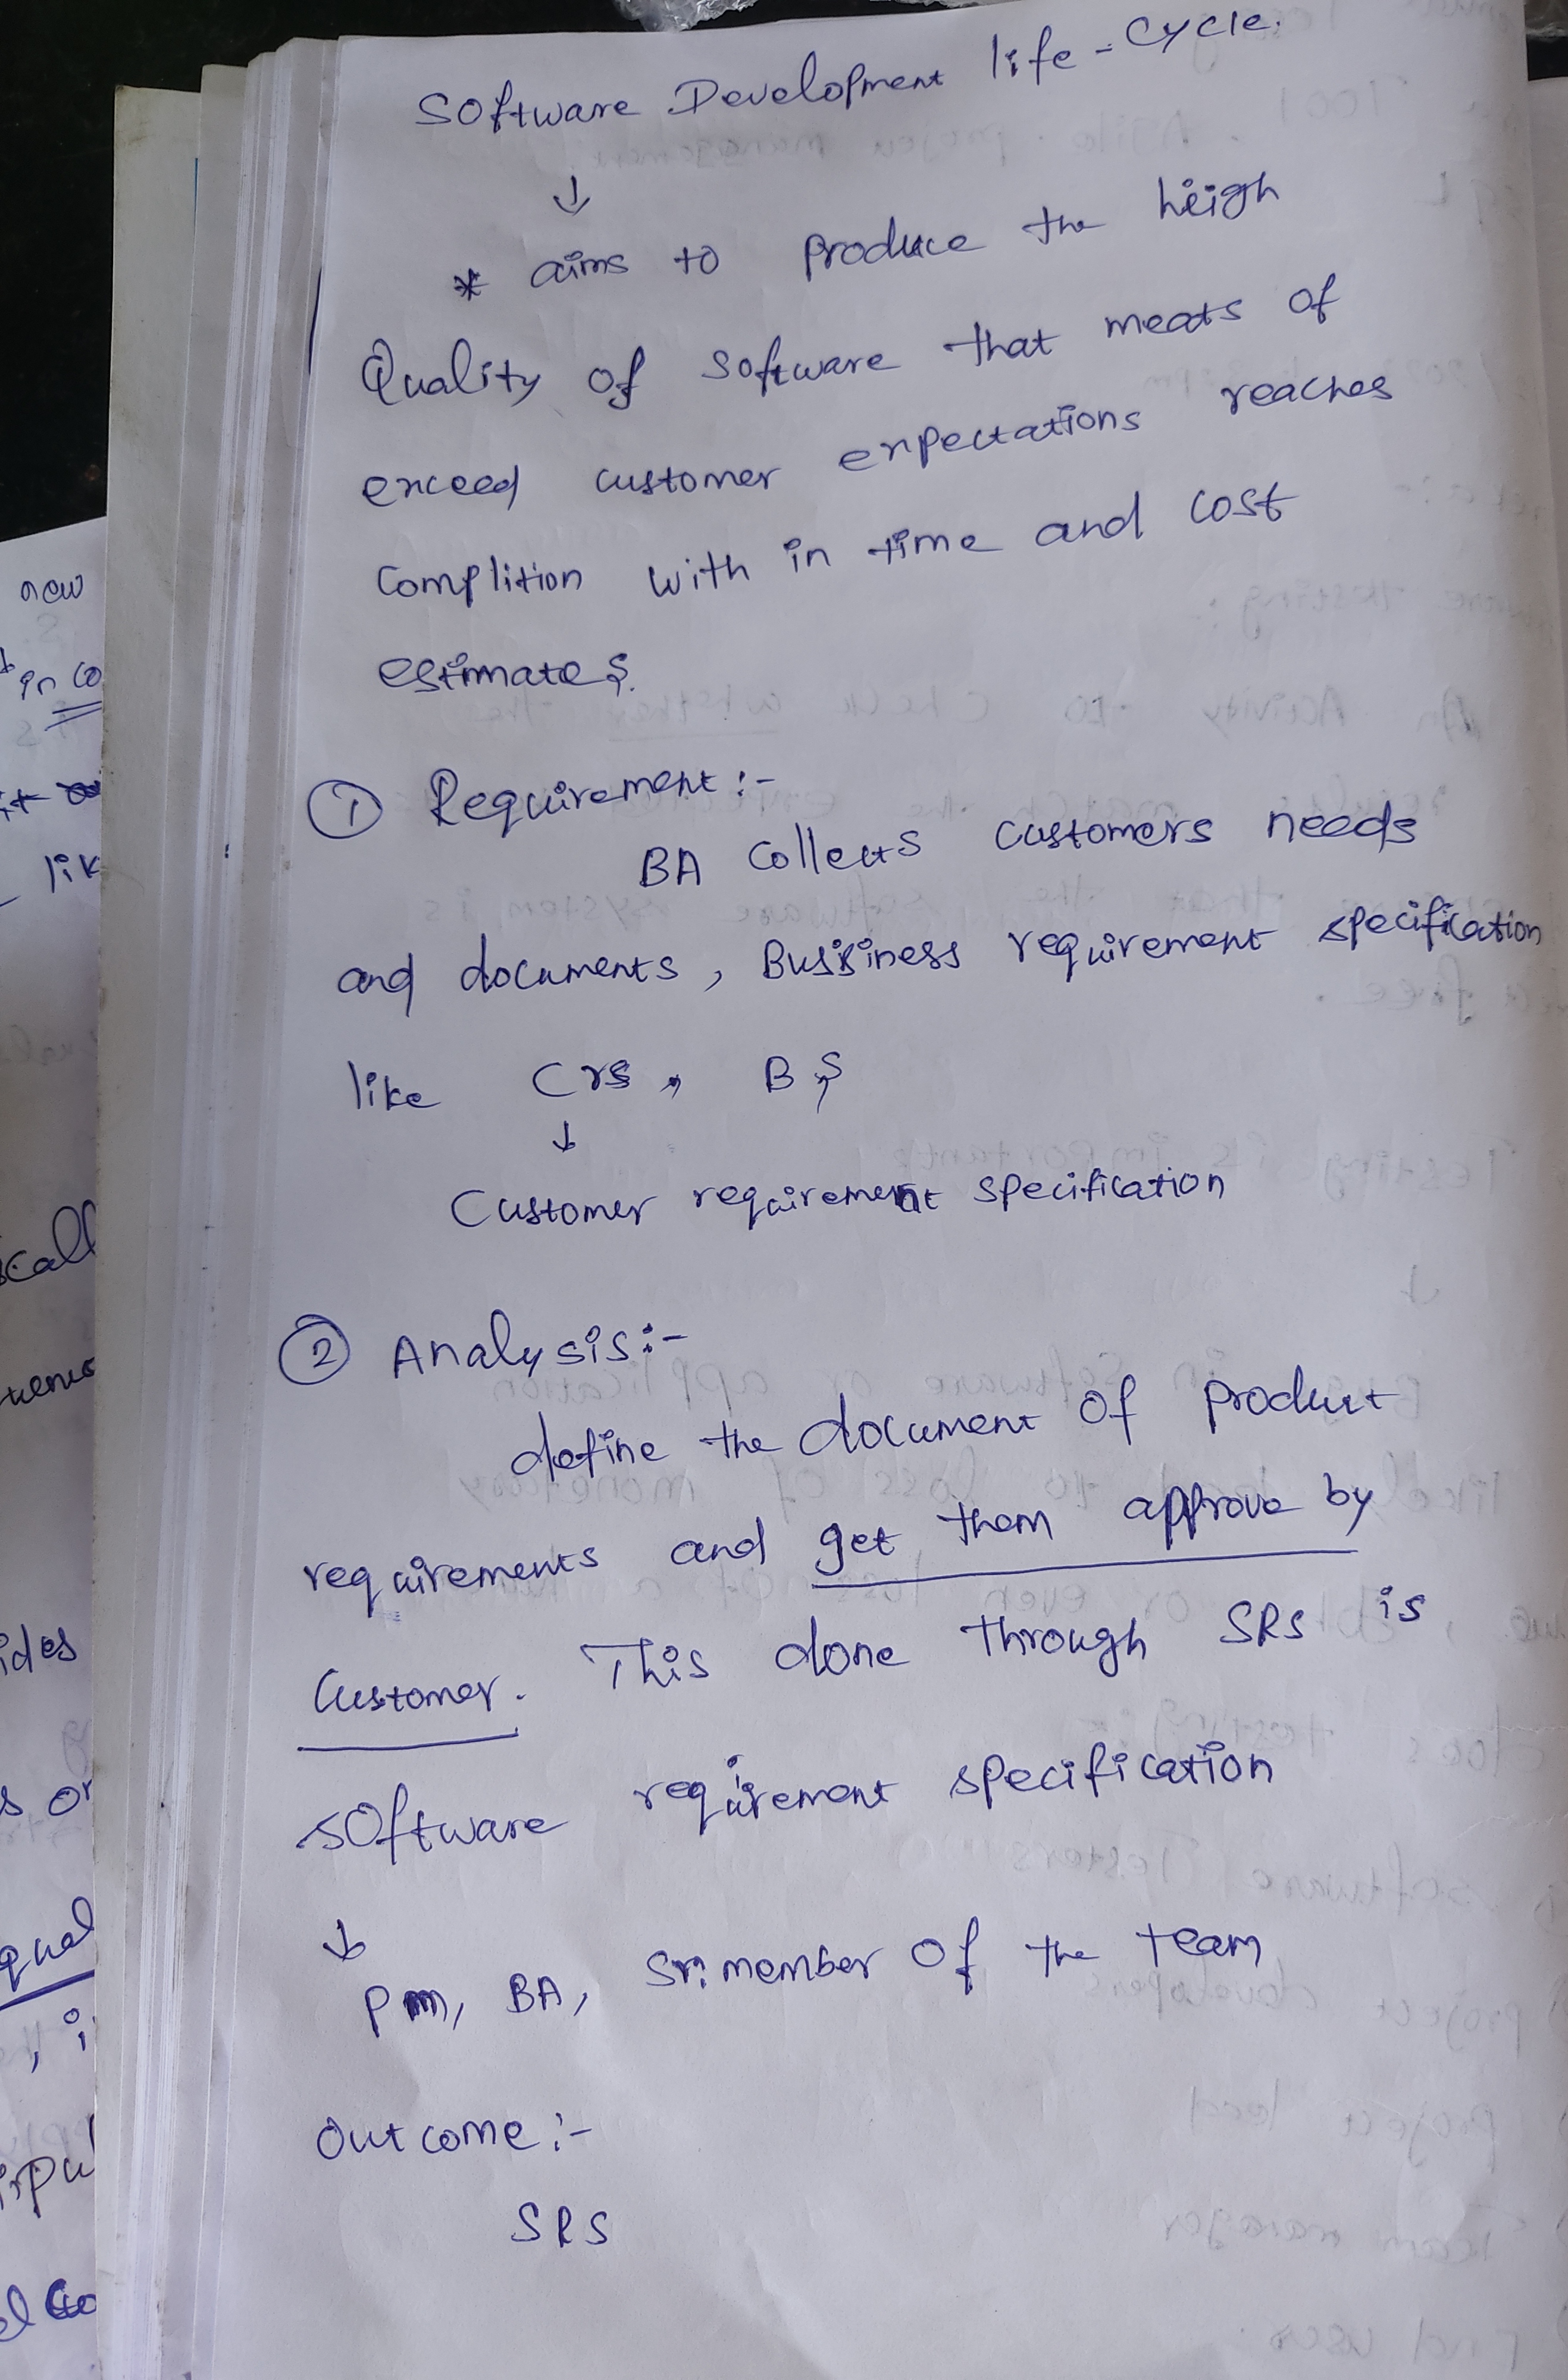 Software Development life-Cycle.
↓
* aims to produce the heigh
Quality of software that meats of
exceed customer expectations reaches
Complition with in time and cost
estimates.
① Requirement :-
BA Collects customers needs
and documents, Bussiness requirement specification
like Crs, BS
↓
Customer requirement specification
② Analysis :-
define the document of product
requirements and get them approve by
Customer. This done through SRS is
software requirement specification
↓
Pm, BA, Sr. member of the team
Outcome :-
SRS
new
in co
lik
call
ides
s or
qual